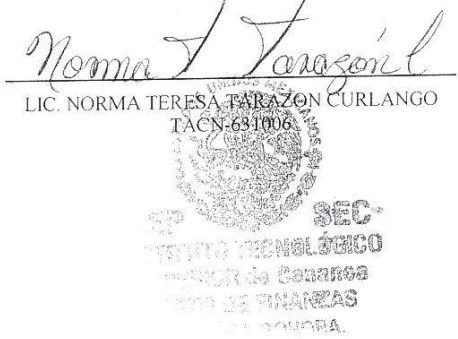 Norma T Tarazón C
LIC. NORMA TERESA TARAZON CURLANGO
TACN-631006
UNIDOS MEXICANOS
SEP SEC
TECNOLÓGICO
de Cananea
DE FINANZAS
SONORA.